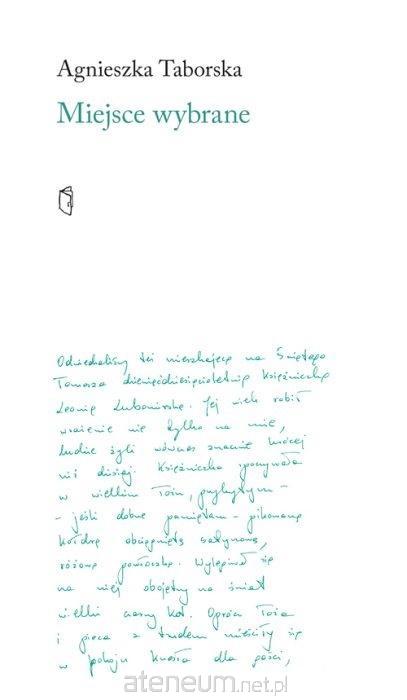 Agnieszka Taborska
Miejsce wybrane
Odwiedzaliśmy też mieszkającą na Świętego
Tomasza dziewięćdziesięcioletnią księżniczkę
Leonię Lubomirską. Jej wiek robił
wrażenie nie tylko na mnie,
ludzie żyli wówczas znacznie krócej
niż dzisiaj. Księżniczka spoczywała
w wielkim łożu, przykrytym –
– jeśli dobrze pamiętam – pikowaną
kołdrą obciągniętą satynową,
różową powłoczką. Wylegiwał się
na niej obojętny na świat
wielki czarny kot. Oprócz łoża
i pieca z trudem mieściły się
w pokoju krzesła dla gości,
ateneum.net.pl